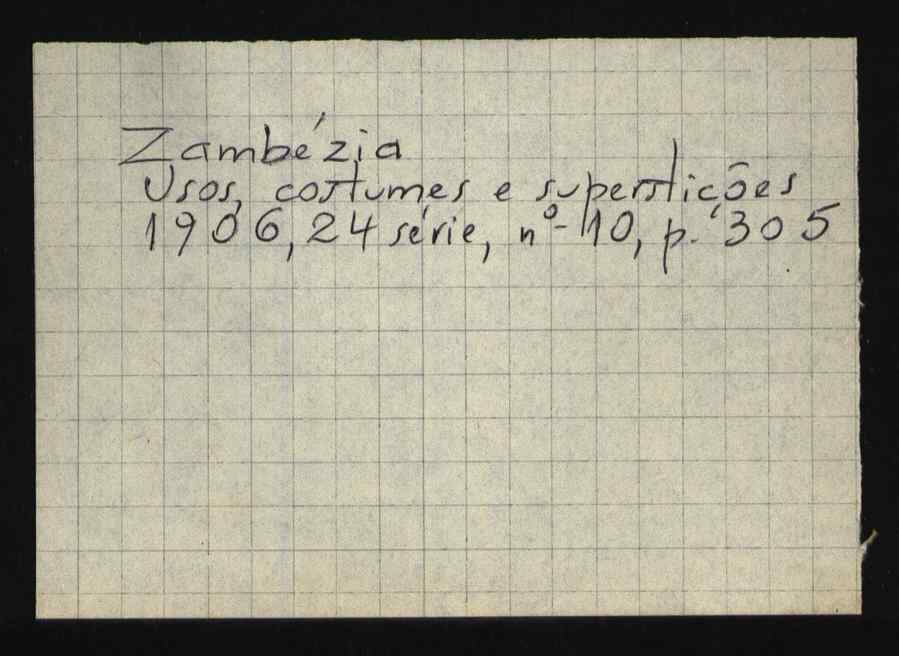 Zambézia
Usos, costumes e superstições
1906, 24 série, nº 10, p. 305